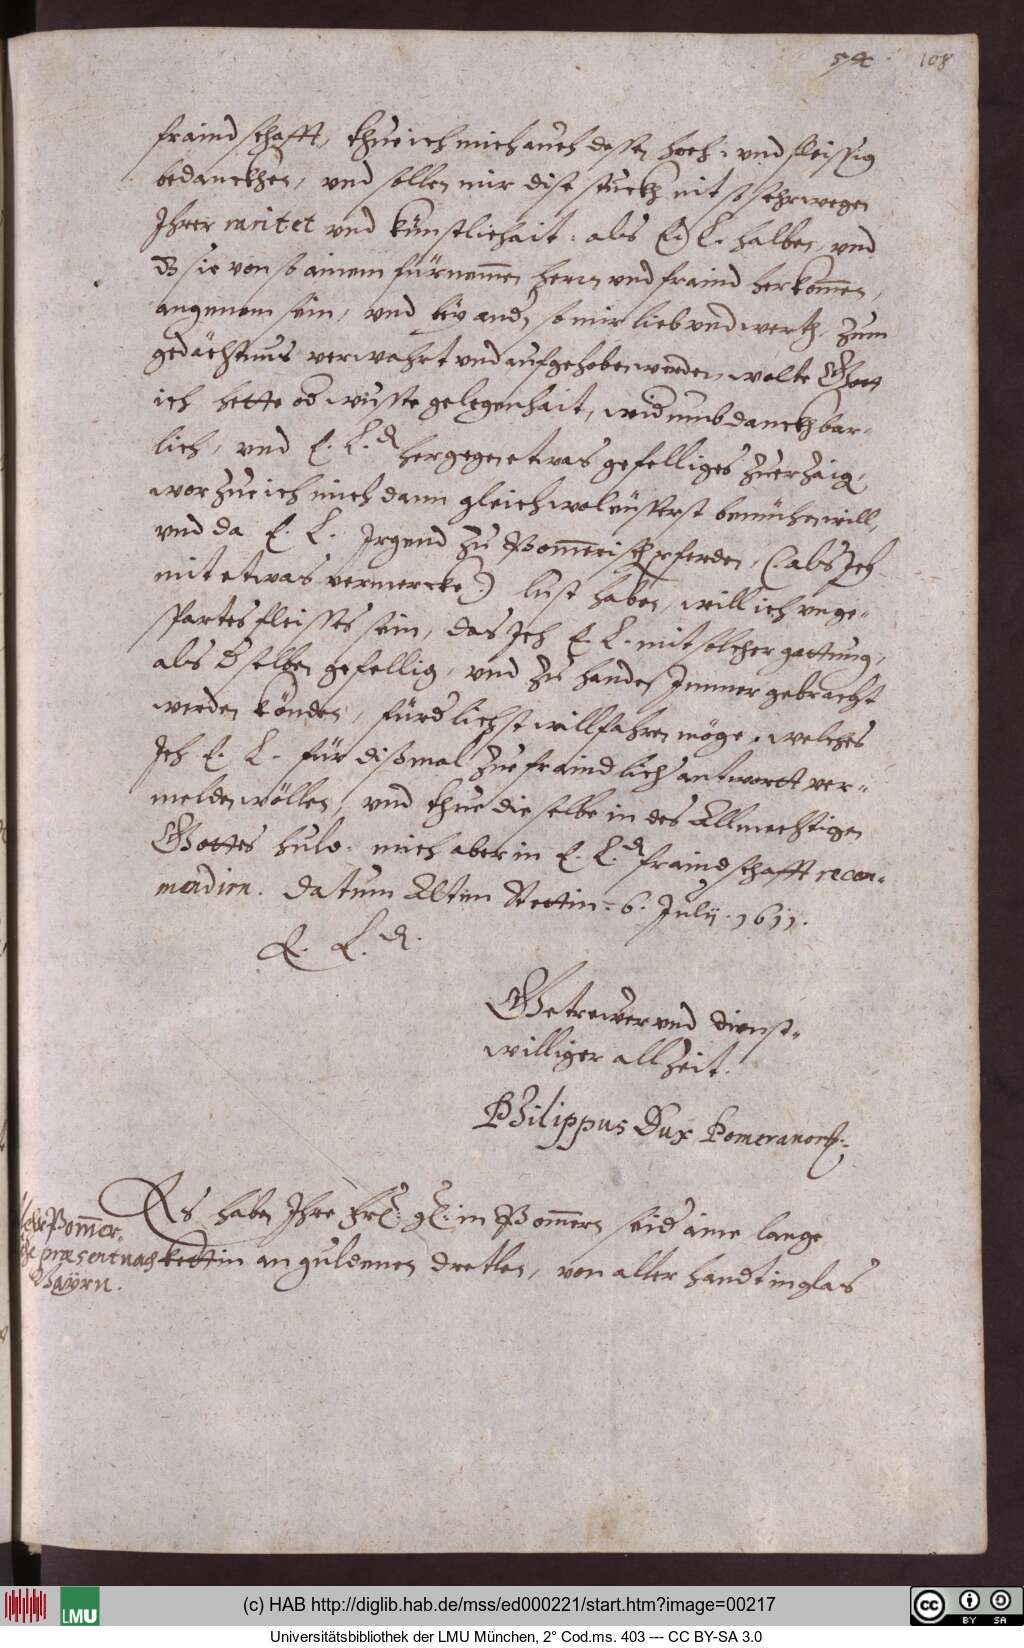 54 108
fraindschafft, thue ich mich auch dessen hoch: und fleissig
bedanckhen, und sollen mir dise stuckh nit so sehr wegen
Ihrer raritet und künstlichait: als E. L. halber, und
dz sie von so ainem fürnemmen herrn und fraind herkommen,
angenem sein, und bey andn, so mir lieb und werth, zum
gedächtnus verwahrt und aufgehoben werden, wolte Gott
ich hette od wüsste gelegenhait, widumb danckhbar-
lich, und E. L.d hergegen etwas gefelliges zuerzaign,
warzue ich mich dann gleichwol eüsserst bemühen will,
und da E. L. Irgend zu Pommerisch pferden, (: als Ich
mit etwas vermercke :) lust haben, will ich unge-
spartes fleisses sein, das Ich E. L. mit solcher gattung,
als dselben gefellig, und zu handen Immer gebracht
werden könden, fürdlichst willfahren möge. welches
Ich E. L. für dißmal zue fraindlich antwortt ver-
melden wöllen, und thue dieselbe in des Allmechtigen
Gottes huld: mich aber in E. L.d fraindschafft recom-
mendirn. Datum Alten Stettin: 6. Julij. 1611.
E. L.d.
Getrewer und dienst-
williger allzeit.
Philippus Dux Pomeranorum.
Es haben Ihre Frl: gl: in Pommern seid aine lange
Pommer:
præsent nach
Bayrn.
kettin an guldenen dretlen, von allerhandt inglas
(c) HAB http://diglib.hab.de/mss/ed000221/start.htm?image=00217
LMU
cc BY SA
Universitätsbibliothek der LMU München, 2° Cod.ms. 403 --- CC BY-SA 3.0